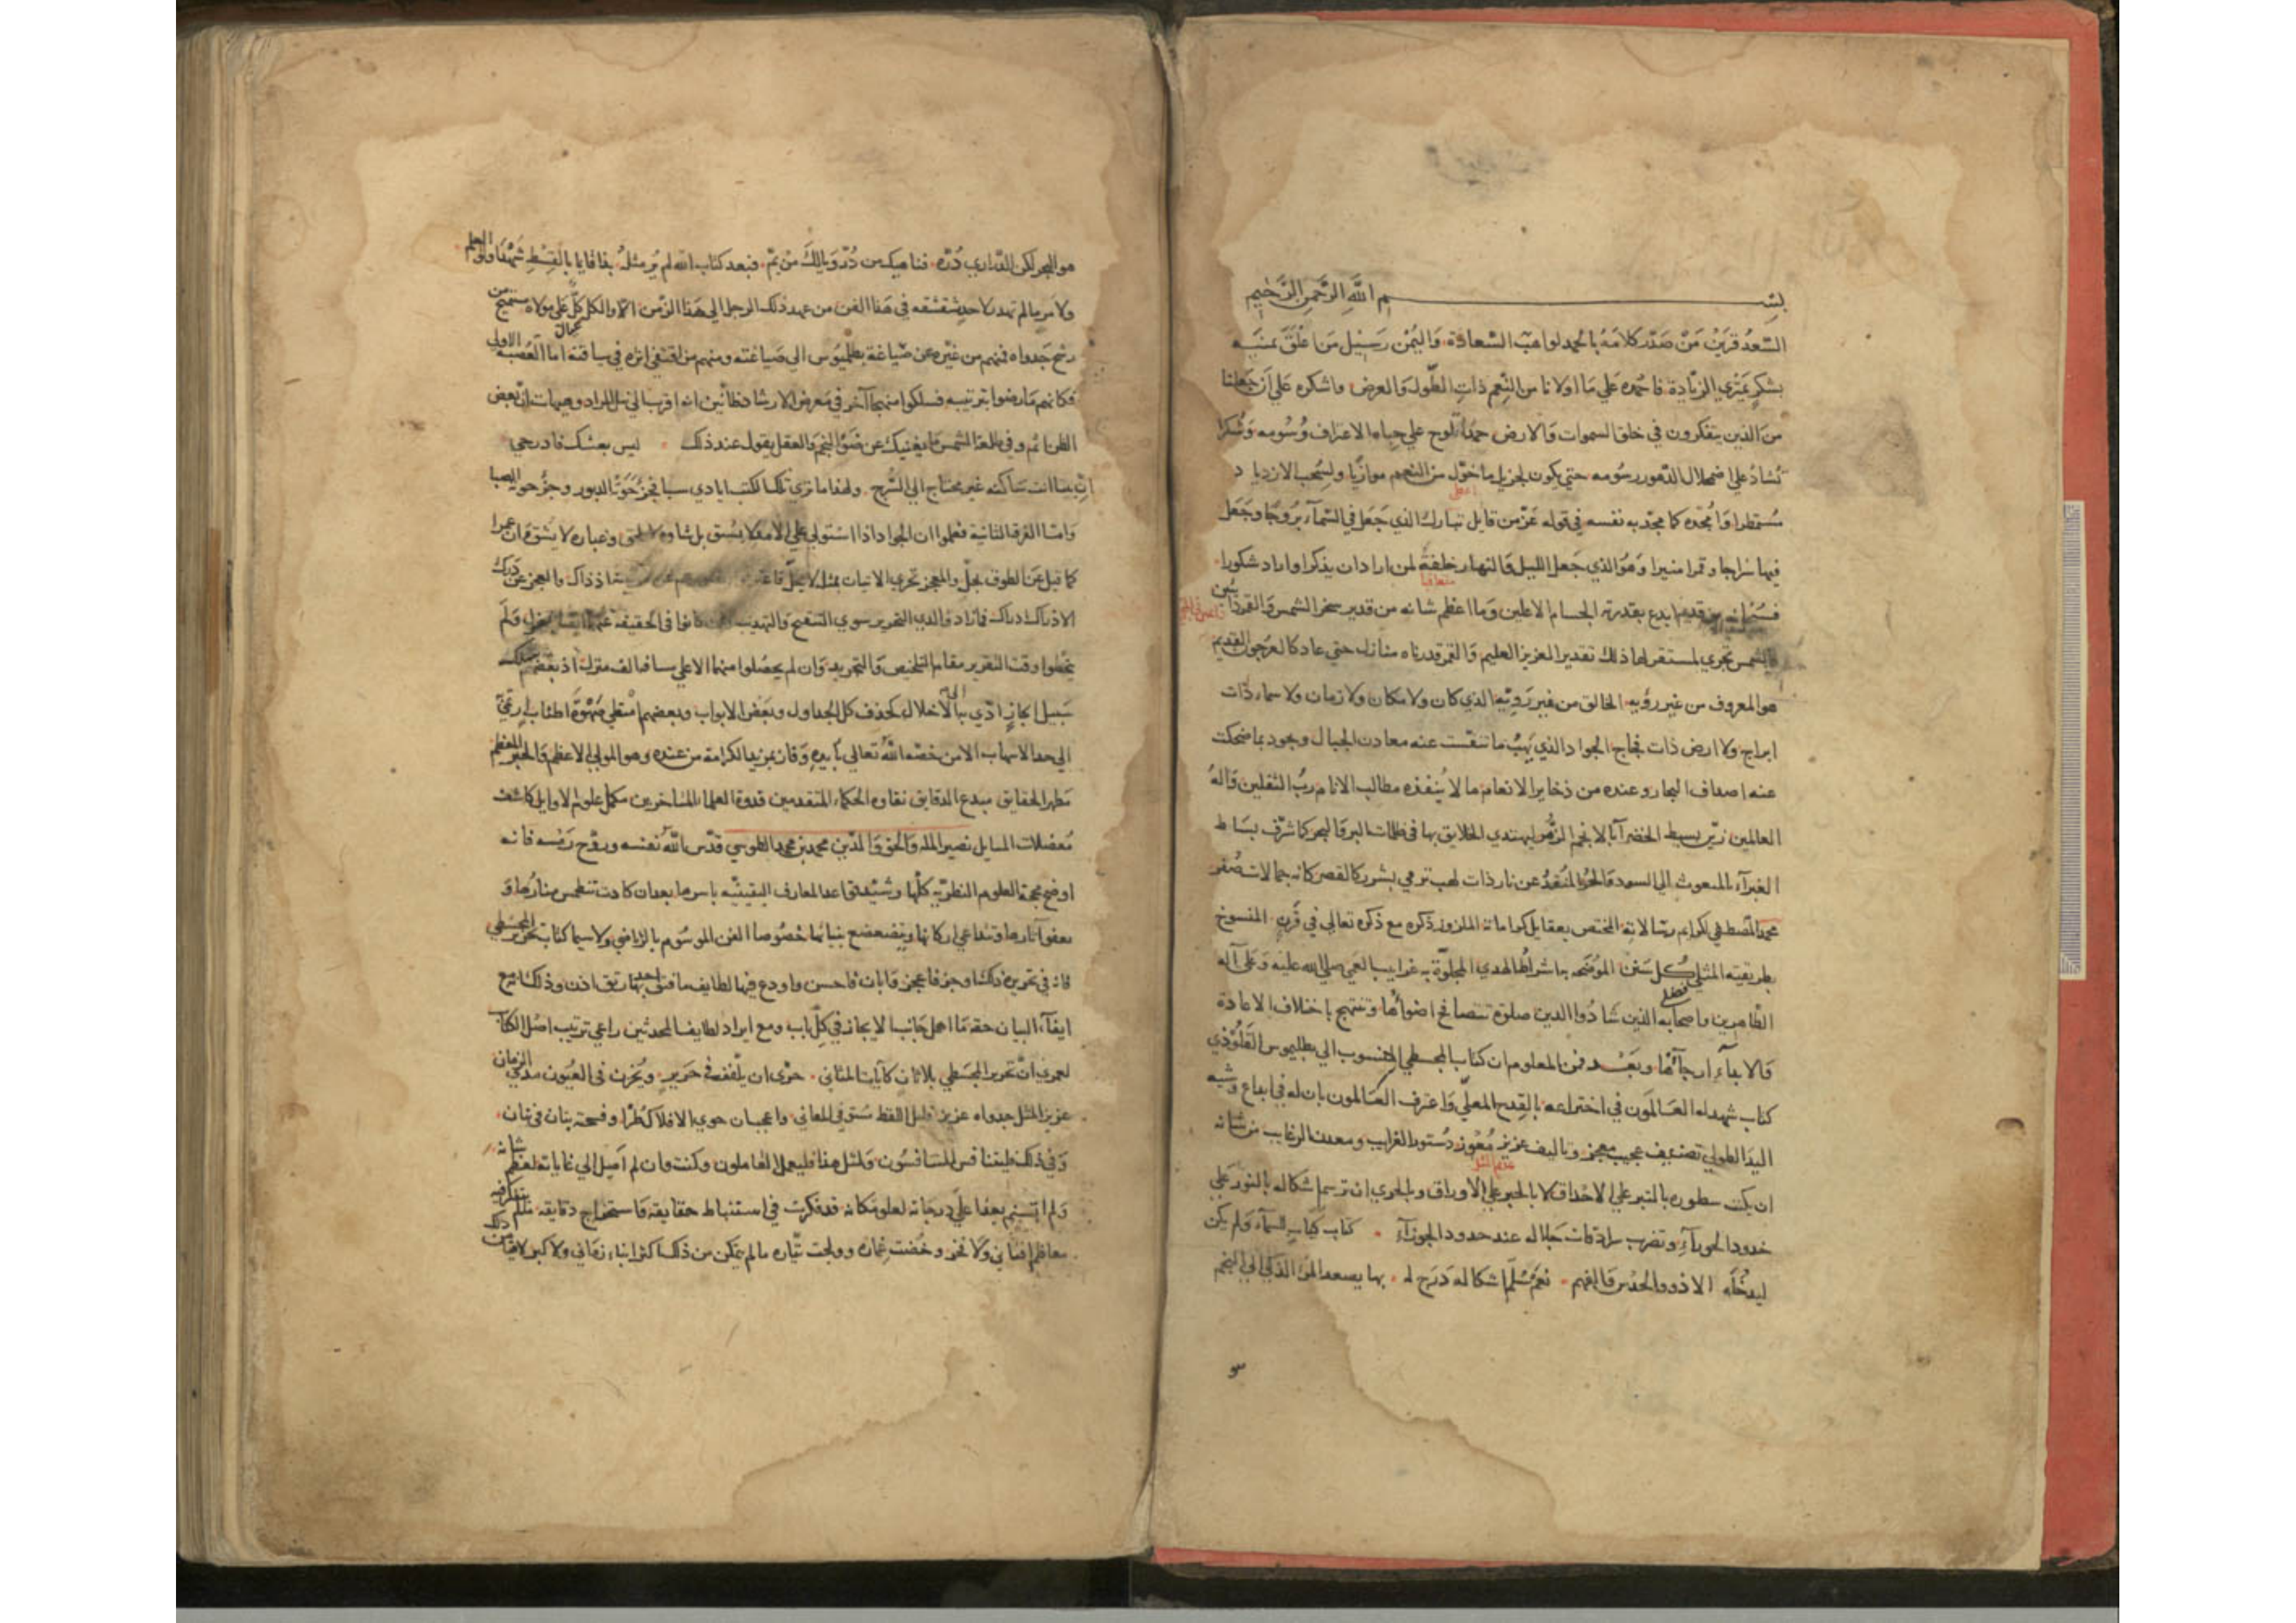 بسم الله الرحمن الرحيم
السعد قرين من صدر كلامه بالحمد لواهب السعادة واليمن رسيل من علق بمنيه
بشكر يمتري الزيادة فاحمده علي ما اولانا من النعم ذات الطول والعرض واشكره علي ان جعلنا
من الذين يتفكرون في خلق السموات والارض حمدا تلوح علي جباه الاعتراف وسومه وشكرا
تشاد علي اضمحلال الدهور رسومه حتي يكون لجزيل ما خول من النعم موازيا ولسحب الازدياد
مستمطرا وامجده كما مجد به نفسه في قوله عز من قايل تبارك الذي جعل في السمآء بروجا وجعل
فيها سراجا وقمرا منيرا وهو الذي جعل الليل والنهار خلفة لمن اراد ان يذكر او اراد شكورا
متعاقبا
من قديم ابدع بقدرته الجسام الاعلين وما اعظم شانه من قدير سخر الشمس والقمر دائبين
والشمس تجري لمستقر لها ذلك تقدير العزيز العليم والقمر قدرناه منازل حتي عاد كالعرجون القديم
هو المعروف من غير رؤيه الخالق من غير رويه الذي كان ولا مكان ولا زمان ولا سماء ذات
ابراج ولا ارض ذات فجاج الجواد الذي يهب ما تنفست عنه معادن الجبال وجود بما ضحكت
عنه اصداف البحار وعنده من ذخاير الانعام ما لا ينفده مطالب الانام رب الثقلين واله
العالمين زين بسيط الخضرآء بالانجم الزهر ليهتدي الخلايق بها في ظلمات البر والبحر كما شرف بساط
الغبرآء بالمبعوث الي السود والحمر المنقذ عن نار ذات لهب ترمي بشرر كالقصر كانه جمالات صفر
محمد المصطفي لكرايم رسالاته المختص بعقايل كراماته المقرون ذكره مع ذكره تعالي في قرن المنسوخ
بطريقته المثلي كل سنن الموضحه باشراط الهدي المجلوة به غرايب العمي صلي الله عليه وعلي آله
الطاهرين واصحابه الذين شادوا الدين صلوة تتصافح اضواؤها وتبتهج باختلاف الاعادة
والابدآء ارجآؤها وبعد فمن المعلوم ان كتاب المجسطي المنسوب الي بطليموس القلوذي
كتاب شهد له العالمون في اختراعه بالقدح المعلي واعترف العالمون بان له في ابداع وشيه
اليد الطولي تصنيف عجيب معجز وتاليف عزيز معوز دستور الغرايب ومعدن الرغايب من شانه
عديم المثل
ان يكتب سطوره بالتبر علي الاحداق لا بالحبر علي الاوراق وبالحري ان ترسم اشكاله بالنور علي
خدود الحورآء وتضرب سرادقات جلاله عند حدود الجوزآء كتاب كتاب السمآء ولم يكن
ليدخله الا ذوو الحدس والفهم نعم سلم اشكاله درج له بها يصعد المرء الذكي الي النجم
هو البحر لكن الدراري دره فناهيك من در ويالك من يم فبعد كتاب الله لم ير مثله بقافايا بالقسط شهدا ولو العلم
ولامر ما لم تهدر لاحد شقشقه في هذا الفن من عهد ذلك الرجل الي هذا الزمن الا والكل كل علي مولاه مستميح من
رشح جدواه فمنهم من غيره عن صياغة بطلميوس الي صياغته ومنهم من اقتفي اثره في سياقته اما العصبه الاولي
فكانهم ما رضوا بترتيبه فسلكوا منهجا آخر في معرض الارشاد ظانين انه اقرب الي نيل المراد وهيهات ان بعض
الظن اثم وفي طلعة الشمس ما يغنيك عن ضوء النجم والعقل يقول عند ذلك ليس بعشك فادرجي
ان بيتا انت ساكنه غير محتاج الي السرج ولهذا ما تري تلك الكتب ايادي سبا تجر جوته الدبور وجرجوا الصبا
واما الفرقة الثانية فعلموا ان الجواد اذا استولي علي الامد لا يسبق بل شاوه لا يلحق وغباره لا يشق وان عمرا
كما قيل عن الطوق بجل والمعجز تحري الاتيان بمثله اذ ذاك والعجز عن درك
الادراك ادراك فما زاد والدي التحرير سوي التنقيح والتهذيب كانوا في الحقيقة ولم
يخطوا وقت التقرير مقام التلخيص والتجريد وان لم يحصلوا منها الا علي مسافة الف منزل اذ بعضهم سلك
سبيل ايجاز ادي به الي الاخلال كحذف كل الجداول وبعض الابواب وبعضهم امتطي صهوة اطناب
الي حد الاسهاب الا من خصه الله تعالي بأيده وفان بمزيد الكرامة من عنده وهو المولي الاعظم والحبر المعظم
مظهر الحقايق مبدع الدقايق نقاوه الحكماء المتقدمين قدوة العلماء المتاخرين مكمل علوم الاوايل كاشف
معضلات المسايل نصير المله والحق والدين محمد بن محمد الطوسي قدس الله نفسه وروح رمسه فانه
اوضح محجة العلوم النظريه كلها وشيد قواعد المعارف اليقينيه باسرها بعد ان كادت تنطمس منارها و
يعفو آثارها وتتداعي اركانها ويتضعضع بنيانها خصوصا الفن الموسوم بالرياضي ولا سيما كتاب تحرير المجسطي
فانه في تحريره ذلك اوجز فاعجز وابان فاحسن واودع فيها لطايف ما فتي احد بها رتق اذن وذلك انه مع
ايفآء البيان حقه ما اهمل جانب الايجاز في كل باب ومع ايراد لطايف المحدثين راعي ترتيب اصل الكتاب
لعمري ان تحرير المجسطي بلا ثان كآيات المثاني حري ان يلفف في حرير ويخزن في العيون مدي الزمان
عزيز المثل جدواه عزيز قليل اللفظ مستوفي المعاني واعجب ان حوي الافلاك طرا وفسحته بنان في بنان
وفي ذلك فليتنافس المتنافسون ولمثل هذا فليعمل العاملون وكنت وان لم اصل الي غاياته لعظم شانه
ولم اتسنم يفاعا علي درجاته لعلو مكانه قد فكرت في استنباط حقايقه واستخراج دقايقه
وخضت غماره وولجت تياره ما لم يتمكن من ذلك اكثر ابناء زماني ولا كبر